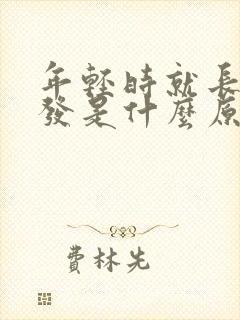 年輕時就長
發是什麼原
費林先